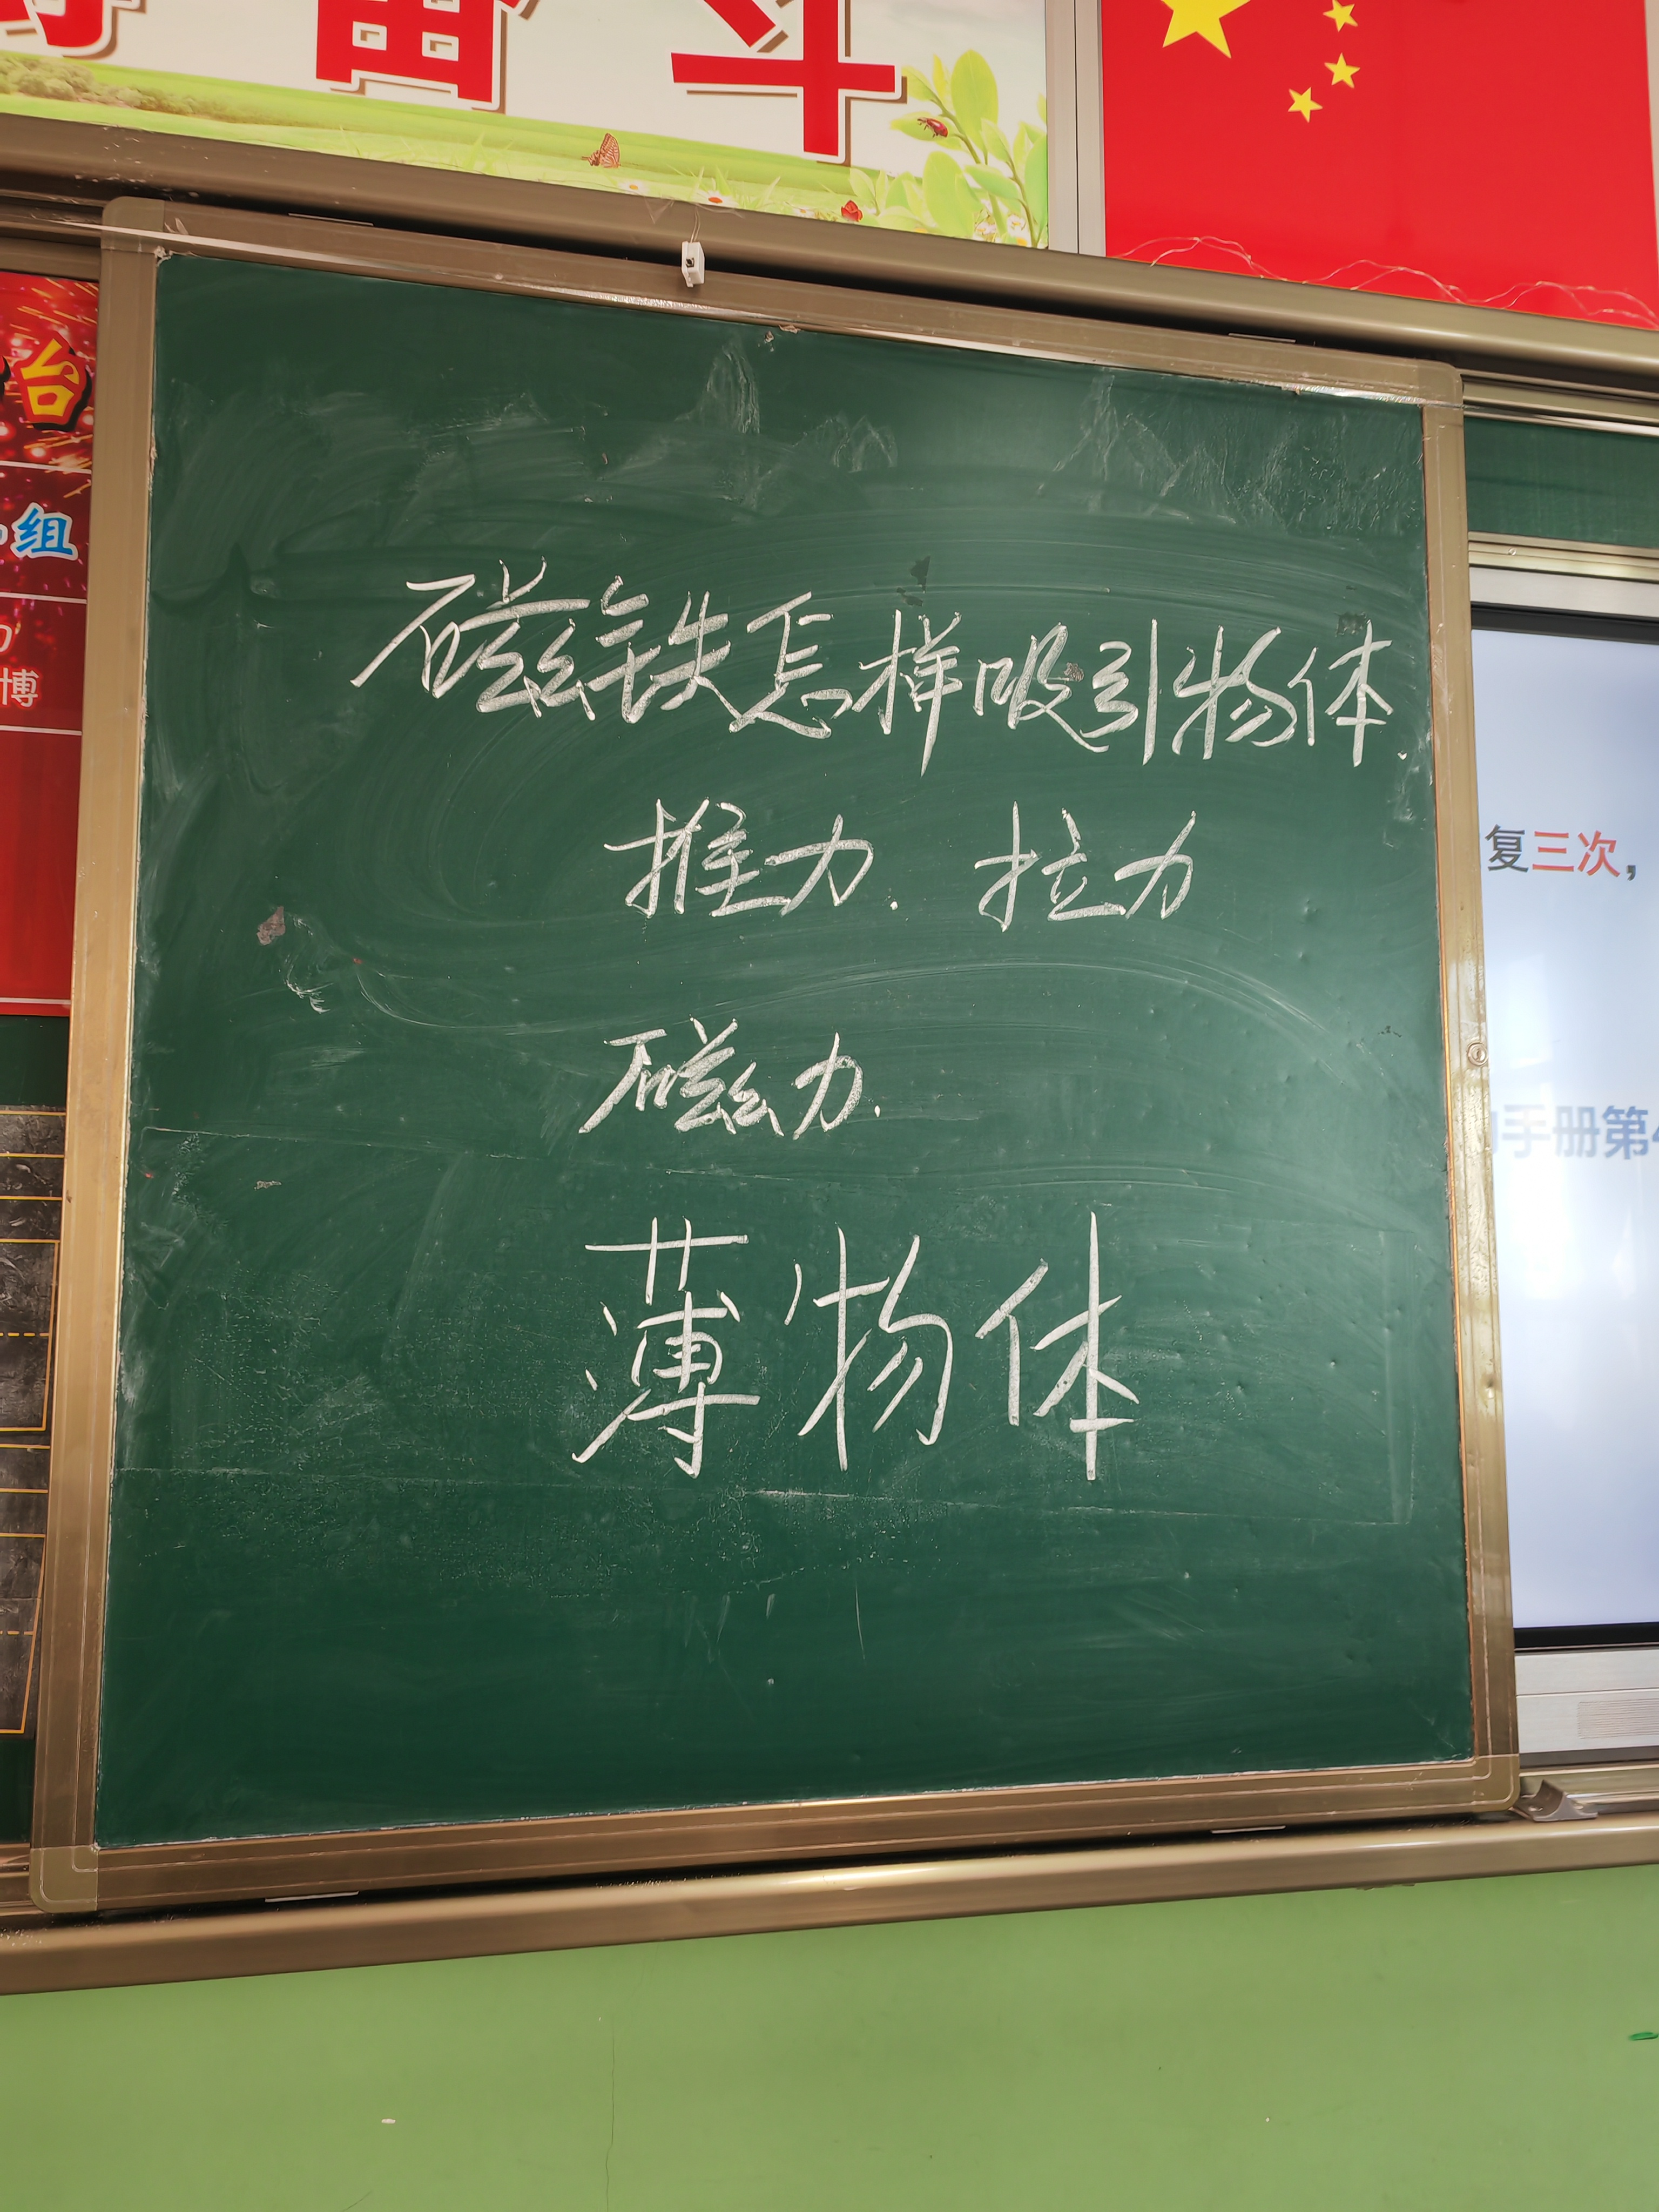 奋斗
台
组
博
磁铁怎样吸引物体.
推力. 拉力
磁力.
薄物体
复三次，
手册第